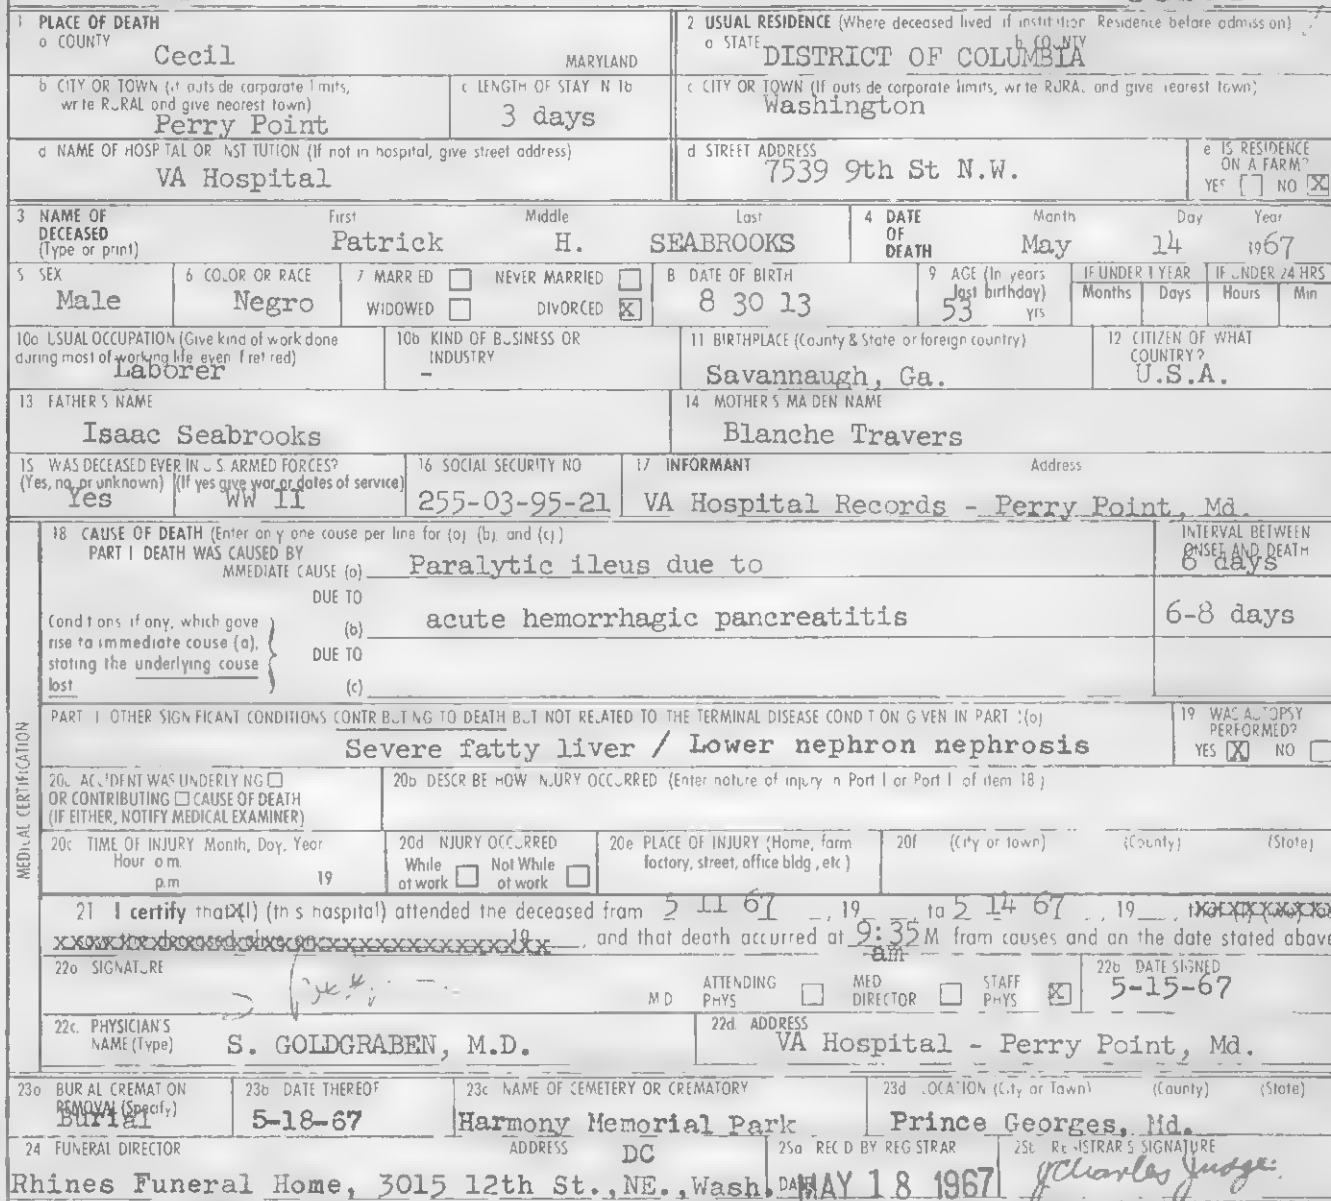 1 PLACE OF DEATH
a COUNTY
Cecil MARYLAND
2 USUAL RESIDENCE (Where deceased lived if institution Residence before admission)
a STATE b COUNTY
DISTRICT OF COLUMBIA
b CITY OR TOWN (if outside corporate limits, write RURAL and give nearest town)
Perry Point
c LENGTH OF STAY IN 1b
3 days
c CITY OR TOWN (If outside corporate limits, write RURAL and give nearest town)
Washington
d NAME OF HOSPITAL OR INSTITUTION (If not in hospital, give street address)
VA Hospital
d STREET ADDRESS
7539 9th St N.W.
e IS RESIDENCE ON A FARM?
YES NO X
3 NAME OF DECEASED (Type or print)
First Middle Last
Patrick H. SEABROOKS
4 DATE OF DEATH
Month Day Year
May 14 1967
5 SEX
Male
6 COLOR OR RACE
Negro
7 MARRIED NEVER MARRIED
WIDOWED DIVORCED X
8 DATE OF BIRTH
8 30 13
9 AGE (In years last birthday)
53 yrs
IF UNDER 1 YEAR
Months Days
IF UNDER 24 HRS
Hours Min
10a USUAL OCCUPATION (Give kind of work done during most of working life even if retired)
Laborer
10b KIND OF BUSINESS OR INDUSTRY
-
11 BIRTHPLACE (County & State or foreign country)
Savannaugh, Ga.
12 CITIZEN OF WHAT COUNTRY?
U.S.A.
13 FATHER'S NAME
Isaac Seabrooks
14 MOTHER'S MAIDEN NAME
Blanche Travers
15 WAS DECEASED EVER IN U.S. ARMED FORCES?
(Yes, no, or unknown) (If yes give war or dates of service)
Yes WW II
16 SOCIAL SECURITY NO
255-03-95-21
17 INFORMANT Address
VA Hospital Records - Perry Point, Md.
MEDICAL CERTIFICATION
18 CAUSE OF DEATH (Enter only one cause per line for (a) (b), and (c))
PART I DEATH WAS CAUSED BY
IMMEDIATE CAUSE (a) Paralytic ileus due to
INTERVAL BETWEEN ONSET AND DEATH
6 days
DUE TO
(b) acute hemorrhagic pancreatitis 6-8 days
Conditions if any, which gave rise to immediate cause (a), stating the underlying cause last
DUE TO
(c)
PART I OTHER SIGNIFICANT CONDITIONS CONTRIBUTING TO DEATH BUT NOT RELATED TO THE TERMINAL DISEASE CONDITION GIVEN IN PART I(a)
Severe fatty liver / Lower nephron nephrosis
19 WAS AUTOPSY PERFORMED?
YES X NO
20a ACCIDENT WAS UNDERLYING
OR CONTRIBUTING CAUSE OF DEATH
(IF EITHER, NOTIFY MEDICAL EXAMINER)
20b DESCRIBE HOW INJURY OCCURRED (Enter nature of injury in Part I or Part I of item 18)
20c TIME OF INJURY Month, Day, Year
Hour a m.
p.m 19
20d INJURY OCCURRED
While at work Not While at work
20e PLACE OF INJURY (Home, farm factory, street, office bldg, etc)
20f (City or town) (County) (State)
21 I certify that (I) (this hospital) attended the deceased from 5 11 67, 19 to 5 14 67, 19
and that death occurred at 9:35 M from causes and on the date stated above
am
22a SIGNATURE
M D ATTENDING PHYS MED DIRECTOR STAFF PHYS X
22b DATE SIGNED
5-15-67
22c. PHYSICIAN'S NAME (Type)
S. GOLDGRABEN, M.D.
22d. ADDRESS
VA Hospital - Perry Point, Md.
23a BURIAL CREMATION REMOVAL (Specify)
Burial
23b DATE THEREOF
5-18-67
23c NAME OF CEMETERY OR CREMATORY
Harmony Memorial Park
23d LOCATION (City or Town) (County) (State)
Prince Georges, Md.
24 FUNERAL DIRECTOR ADDRESS
DC
Rhines Funeral Home, 3015 12th St.,NE.,Wash.
25a REC'D BY REGISTRAR
DATE MAY 18 1967
25b REGISTRAR'S SIGNATURE
J Charles Judge